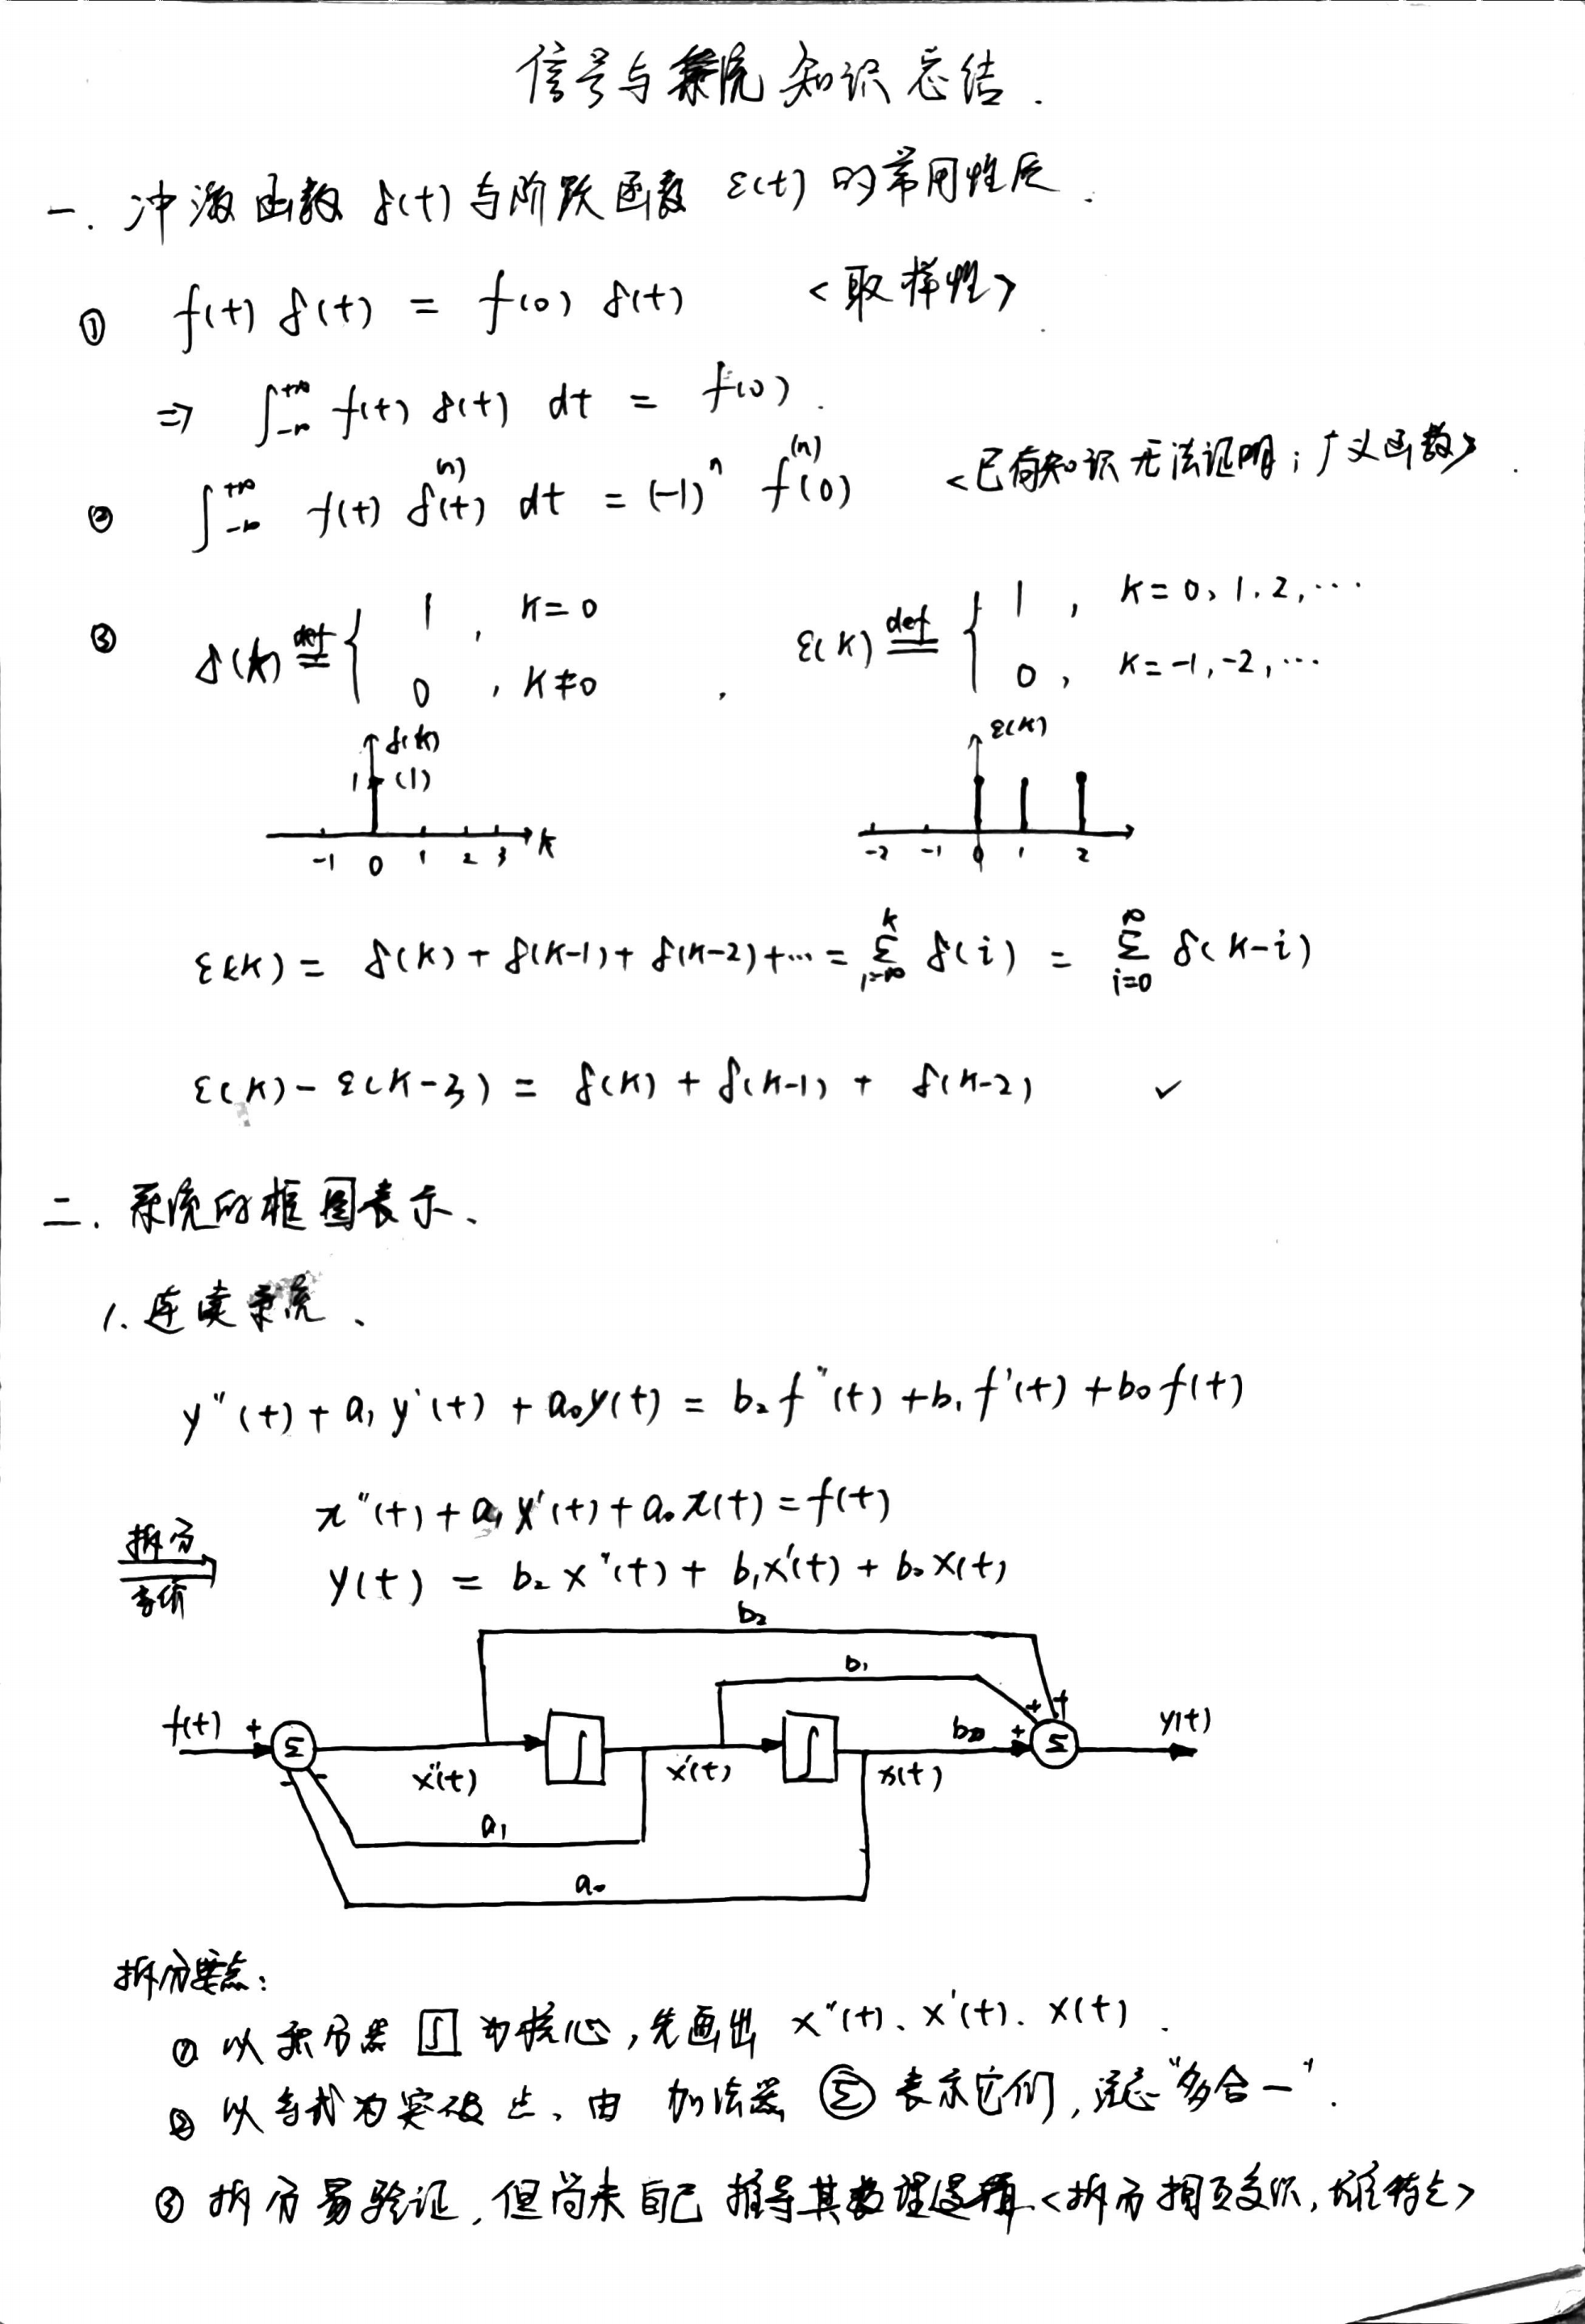 信号与系统知识总结.
一. 冲激函数 δ(t) 与阶跃函数 ε(t) 的常用性质.
① f(t) δ(t) = f(0) δ(t) <取样性>
⇒ ∫_{-∞}^{+∞} f(t) δ(t) dt = f(0).
② ∫_{-∞}^{+∞} f(t) δ^{(n)}(t) dt = (-1)^n f^{(n)}(0) <已有知识无法证明; 广义函数>.
③ δ(k) def= { 1, k=0
0, k≠0 ,
ε(k) def= { 1, k=0, 1, 2, ⋯
0, k=-1, -2, ⋯
δ(k)
1 (1)
-1 0 1 2 3 k
ε(k)
-2 -1 0 1 2
ε(k) = δ(k) + δ(k-1) + δ(k-2) + ⋯ = Σ_{i=-∞}^{k} δ(i) = Σ_{i=0}^{∞} δ(k-i)
ε(k) - ε(k-3) = δ(k) + δ(k-1) + δ(k-2) ✓
二. 系统的框图表示、
1. 连续系统、
y''(t) + a₁y'(t) + a₀y(t) = b₂f''(t) + b₁f'(t) + b₀f(t)
拆分
等价
x''(t) + a₁x'(t) + a₀x(t) = f(t)
y(t) = b₂x''(t) + b₁x'(t) + b₀x(t)
b₂
b₁
f(t) + Σ x''(t) ∫ x'(t) ∫ x(t) b₀ + + + Σ y(t)
- -
a₁
a₀
拆分要点:
① 以积分器 ∫ 为核心, 先画出 x''(t)、x'(t)、x(t).
② 以等式为突破点、由 加法器 Σ 表示它们, 注意"多合一".
③ 拆分易验证, 但尚未自己推导其数理逻辑<拆分相互交织,